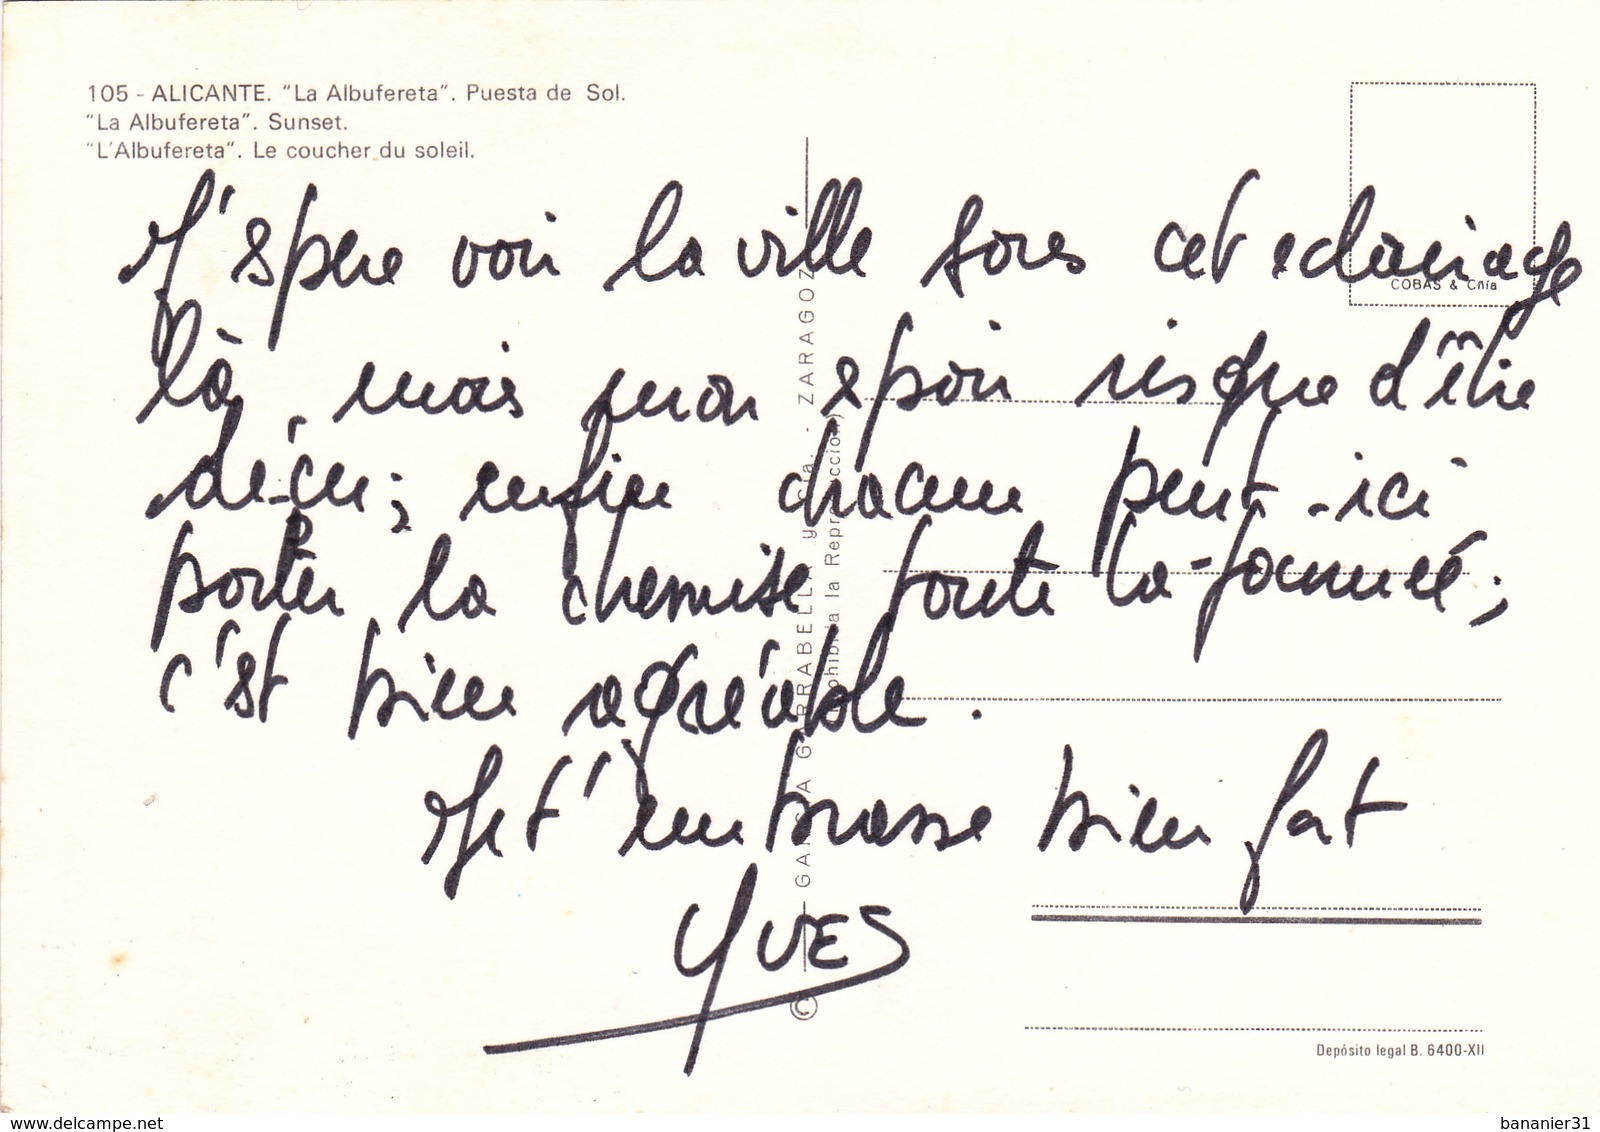 105 - ALICANTE. "La Albufereta". Puesta de Sol.
"La Albufereta". Sunset.
"L'Albufereta". Le coucher du soleil.
COBAS & Cñía
J'espere voir la ville sous cet eclairage
là, mais mon espoir risque d'être
déçu; enfin chacun peut-ici
porter la chemise toute la-journeé;
c'est bien agréable.
Je t'embrasse bien fort
YVES
© GARCIA GARRABELLA y Cía. - ZARAGOZA
(Prohibida la Reproducción)
Depósito legal B. 6400-XII
delcampe.net
bananier31